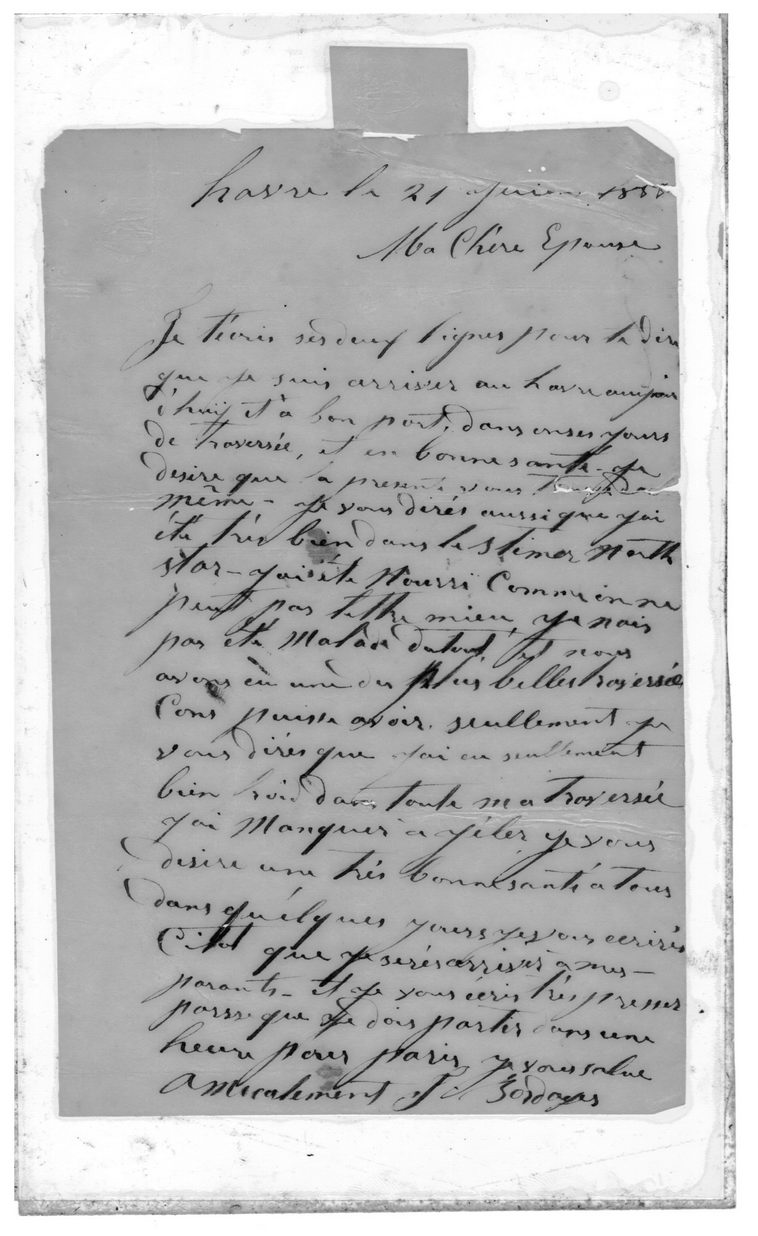 havre le 21
Ma Chère Epouse
Je t'écris ses deux lignes pour te dire
que je suis arriver au havre aujour
d'huij et à bon port, dans onses yours
de traversée, et en bonne santé - je
desire que la presente vous trouve de
même - je vous dirés aussi que j'ai
été très bien dans le stimer North
star - j'ai été Nourri Comme on ne
peut pas lettre mieu, je n'ais
pas été Malade dutout, et nous
avons eu une des plus belles traversée
Cons puisse avoir. seullement je
vous dirés que j'ai eu seullement
bien froid dans toute ma traversée
j'ai Manquer a gêler je vous
desire une très bonne santé a tous
dans quélques yours je vous ecrirés
Citot que je serés arriver a mes -
parants - et je vous écris très presser
parsse que je dois partir dans une
heure pour paris, je vous salue
Amicalement